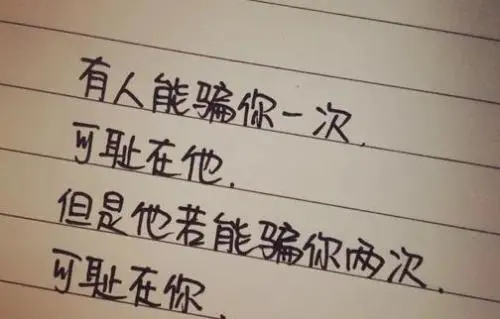 有人能骗你一次.
可耻在他.
但是他若能骗你两次.
可耻在你.